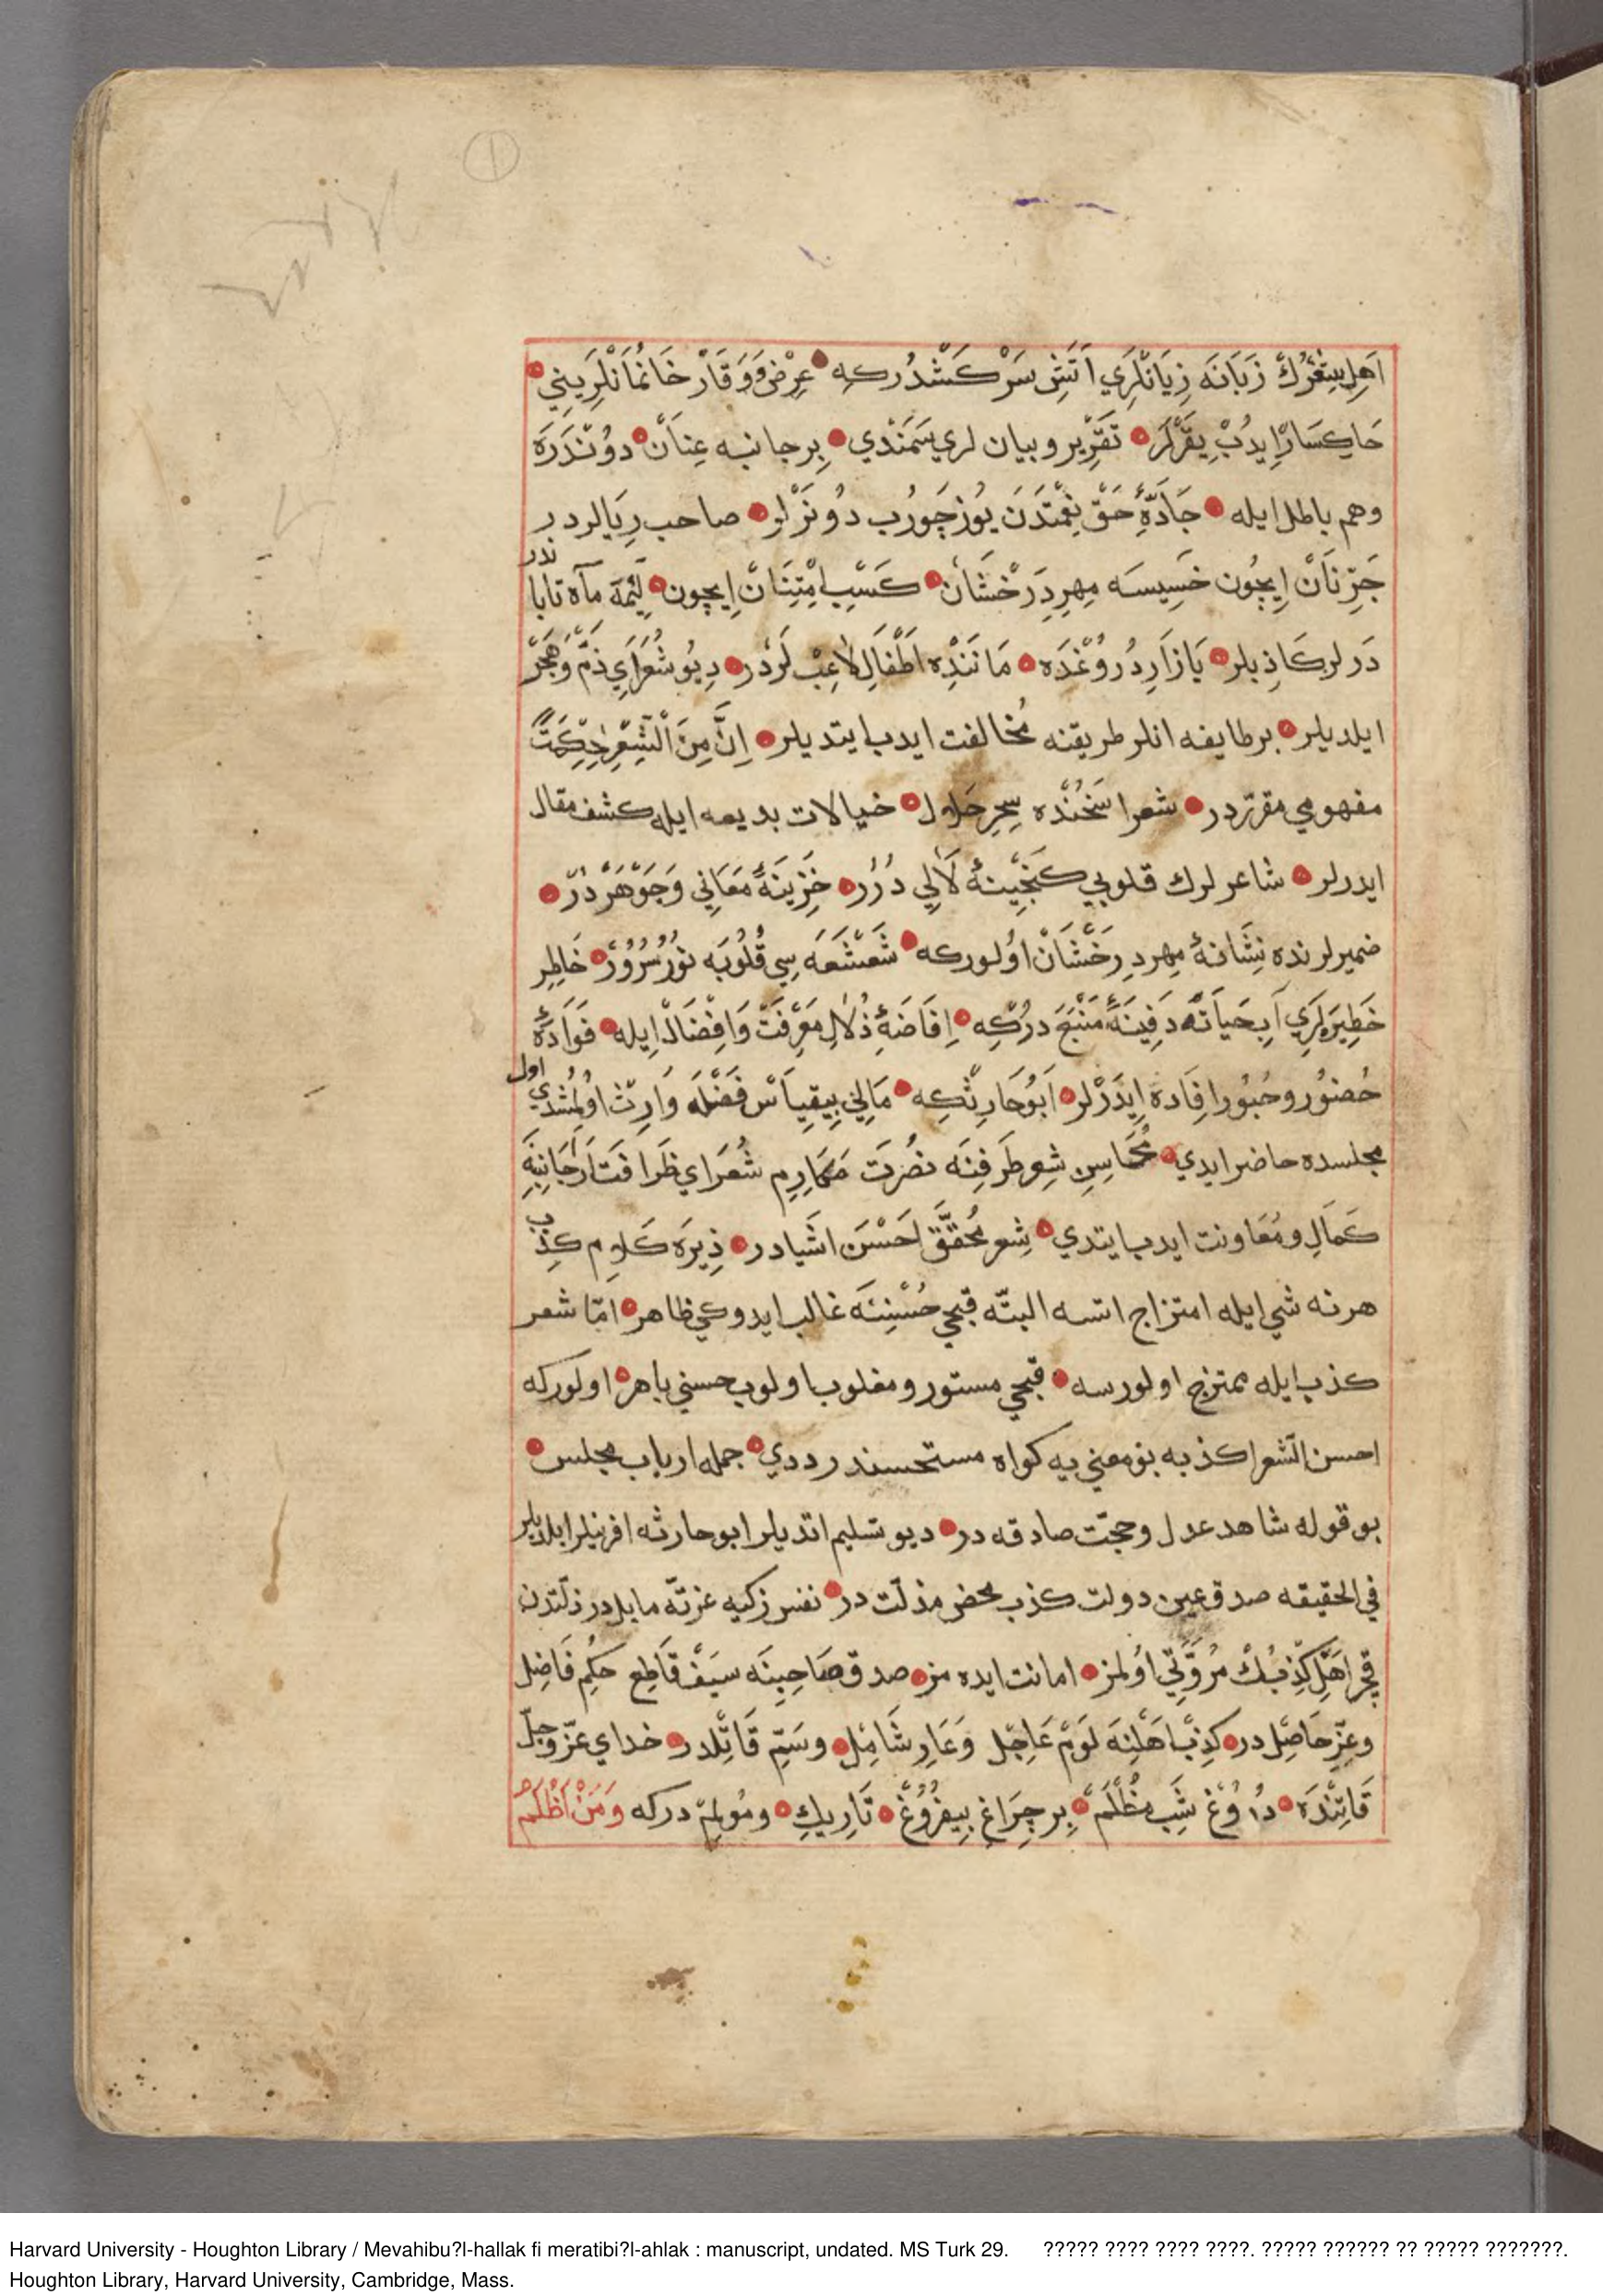 1
اَهِلِ شِعْرُكْ زَبَانَه زِيَانْلَرِي اَتَشِ سَرْكَشْدُركِه عِرْضْ وَوَقَارْ خَانُمَانْلَرِينِي
خَاكِسَارْ اِيدُبْ يِقَرْلَرْ تَقْرِير و بيان لري سَمَنْدي بِر جانبه عِنَانْ دوُنْدَرَه
وهم باطل ايله جَادَّۀِ حَقْ نِعْمَتْدَنَ يُوز چَوُرُب دُونَرْلَر صاحب رِيَالردر
جَرِّ نَانْ اِيچُون خَسِيسَه مِهرِ دَرَخْشَانْ كَسْبِ اِمْتِنَانْ اِيچون لَئِيمَه مَاَه تابا
ندر
دَرلر كَاذِبلر بَازَارِ دُرُوُغْدَه مَانَنْدِه اَطْفَالِ لَاعِبْ لَرْدر دِيُو شُعَرَايِ ذَمّ وَهَجْوْ
ايلديلر بر طايفه انلر طريقنه مُخالفت ايدب ايتديلر اِنَّ مِنَ الْشِّعْرِ لَحِكْمَتًا
مفهومي مقرّردر شعرا سَخُنْدَه سِحْرِ حَلال خيالات بديعه ايله كشف مقال
ايدرلر شاعرلرك قلوبي كَنْجِينۀ لَاَلِي دُرُر خَزِينَۀ مَعَانِي وَجَوْهَرْ دُرّ
ضميرلرنده نِشَانۀ مِهر دِرَخْشَانْ اوُلوركه شَعْشَعَه سِي قُلُوبَه نُوُر سُرُوُرْ خَاطِرِ
خَطِيرَه لَرِي اَبِ حَيَاتَه دَفِينَۀ مَنْبَعْ دركِه اِفَاضَۀِ ذُلاَلِ مَعْرِفَتْ وَاِفْضَالْ اِيله فَوَادَۀ
حُضوُر و حُبُور اِفَادَه اِيدَرْلر اَبُو حَارِثْكِه مَالِي بِيقِيَاسْ فَضْلَه وَارِثْ اوُلمُشدِي
اول
مجلسده حاضر ايدي مُحَاسِنِ شِعر طَرَفِنَه نُصْرَتْ مَكَارِمِ شُعَرَاي ظَرَافَتْ اَرَا جَانِبِنَه
كَمَالِ و مُعَاونت ايدب ايتدي شِعر مُحَقَّقْ اَحْسَن اشيادر ذِيرَه كَلاِم كذب
هر نه شي ايله امتزاج اتسه البتّه قبحي حُسْنِنَه غالب ايدوكي ظاهر امّا شعر
كذب ايله ممتزج اولورسه قبحي مستور و مغلوب اولوب حسني باهر اولوركه
احسن الشعر اكذبه بو معني يه كواه مستحسندر ددي جمله ارباب مجلس
بو قوله شاهد عدل و حجّت صادقه در ديو تسليم اتديلر ابو حارثه افرينلر ايلديلر
في الحقيقه صدق عين دولت كذب محض مذلّت در نفس زكيه عزتّه مايلدر ذلّتدن
قچر اهْلِ كِذْبُكْ مُرُوَّتِي اوُلمز امانت ايده مز صدق صَاحِبِنَه سَيْفْ قَاطِع حكم فَاضِل
وعِزّ حَاصِل در كِذْبْ اَهْلِنَه لَومْ عَاجِل وَعَارِ شَامِل وسَمِّ قَاتِلدر خداي عزّ وجلّ
قَاتِنْدَه دُروُغْ شَبِ مُظْلَم بِر چِرَاغِ بِيفُرُوُغْ تَارِيكِ ومُولِم دركه وَمَنْ اَظْلَمُ
Harvard University - Houghton Library / Mevahibu?l-hallak fi meratibi?l-ahlak : manuscript, undated. MS Turk 29. ????? ???? ???? ????. ????? ?????? ?? ????? ???????.
Houghton Library, Harvard University, Cambridge, Mass.